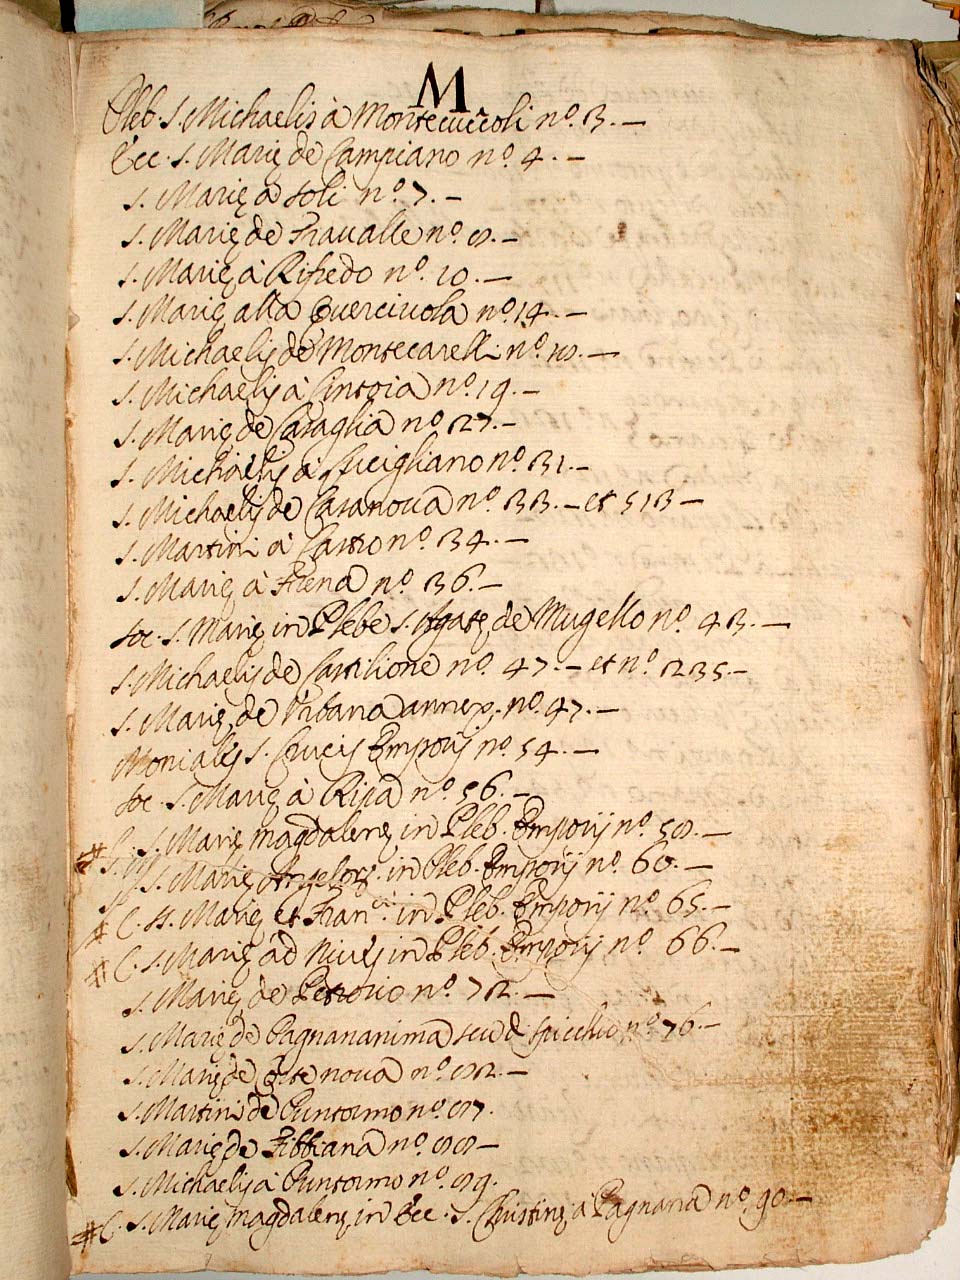 M.
Pleb. S. Michaelis à Montecuccoli nº. 3. —
Ecc. S. Marię de Campiano nº. 4. —
S. Marię a Soli nº. 7. —
S. Marię de Traualle nº. 8. —
S. Marię à Rifredo nº. 10. —
S. Marię alla Querciuola nº. 14. —
S. Michaelis de Montecarelli nº. 18. —
S. Michaelis à Cintoia nº. 19. —
S. Marię de Casaglia nº. 27. —
S. Michaelis a Lucigliano nº. 31. —
S. Michaelis de Casanoua nº. 33. — et 513 —
S. Martini à Castro nº. 34. —
S. Marię à nº. 36. —
Soc. S. Marię in Plebe S. Agatę de Mugello nº. 43. —
S. Michaelis de Castilione nº. 47. — et nº. 1235. —
S. Marię de Vrbana annex. nº. 47. —
Moniales S. Crucis Emporij nº. 54. —
Soc. S. Marię à Ripa nº. 56. —
S. Marię Magdalenę in Pleb. Emporij nº. 58. —
S. Marię Angelor. in Pleb. Emporij nº. 60. —
# C. SS. Marię et Franci. in Pleb. Emporij nº. 65. —
# C. S. Marię ad Niues in Pleb. Emporij nº. 66. —
S. Marię de Petroio nº. 72. —
S. Marię de Pagnananima seu d. Spicchio nº. 76. —
S. Marię de noua nº. 82. —
S. Martini de Puntormo nº. 87.
S. Marię de Fibbiana nº. 88 —
S. Michaelis à Puntormo nº. 89.
# C. S. Marię Magdalenę in Ecc. S. Christinę a Pagnana nº. 90. —